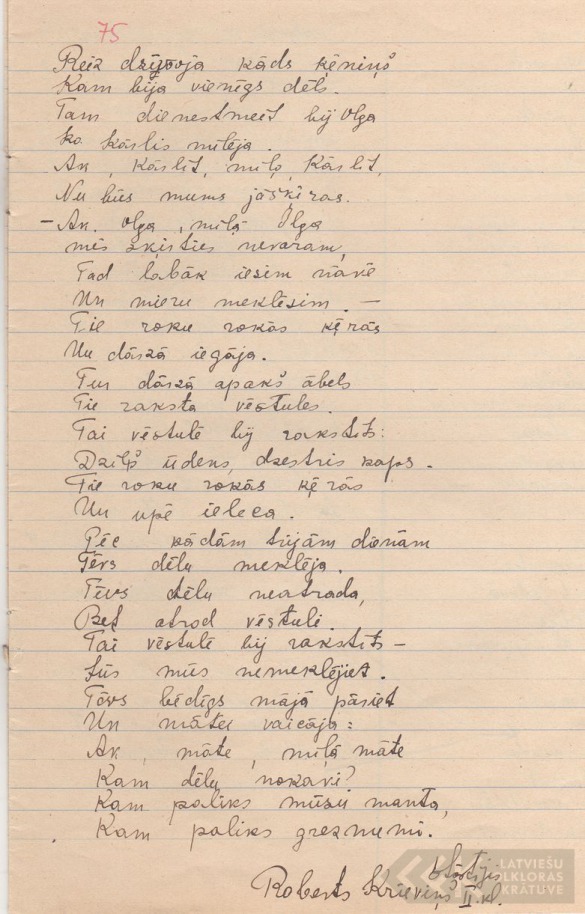 75
Reiz dzīvoja kāds ķēniņš
Kam bija vienīgs dēls.
Tam dienestmeit bij Olga
ko Kārlis mīlēja.
Ak, Kārlīt, mīļo Kārlīt,
Nu būs mums jāšķiras.
– Ak. Olga, mīļā Olga
mēs šķirties nevaram,
Tad labāk iesim nāvē
Un mieru meklēsim. –
Tie roku rokās ķērās
Un dārzā iegāja.
Tur dārzā apakš ābels
Tie raksta vēstules.
Tai vēstulē bij rakstīts:
Dziļš ūdens, dzestris kaps.
Tie roku rokās ķērās
Un upē ieleca.
Pēc kādām trijām dienām
Tēvs dēlu meklēja.
Tēvs dēlu neatrada,
Bet atrod vēstuli.
Tai vēstulē bij rakstīts –
Jūs mūs nemeklējiet.
Tēvs bēdīgs mājā pāriet
Un mātei vaicāja:
Ak, māte, mīļā māte
Kam dēlu nokavi?
Kam paliks mūsu manta,
Kam paliks greznumi.
Stāstījis
Roberts Krieviņš II kl.
LATVIEŠU
FOLKLORAS
KRĀTUVE